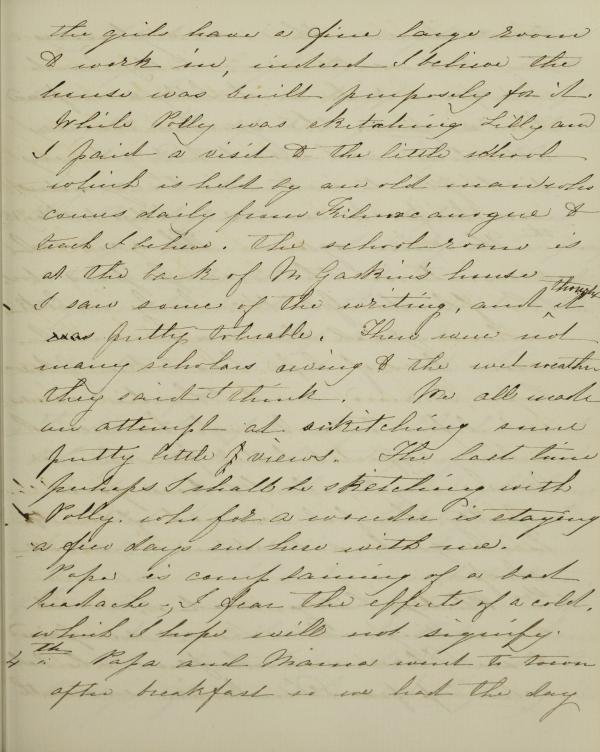 the girls have a fine large room
to work in, indeed I believe the
house was built purposely for it.
While Polly was sketching Lilly and
I paid a visit to the little school
which is held by an old man who
comes daily from Kilmacanogue to
teach I believe. The school room is
at the back of Mr Gaskin's house
I saw some of the writing, and thought it
was pretty tolerable. There were not
many scholars owing to the wet weather
they said I think. We all made
an attempt at sketching some
pretty little views. The last time
perhaps I shall be sketching with
Polly. who for a wonder is staying
a few days out here with me.
Papa is complaining of a bad
headache, I fear the effects of a cold,
which I hope will not signify.
4th Papa and Mama went to town
after breakfast so we had the day